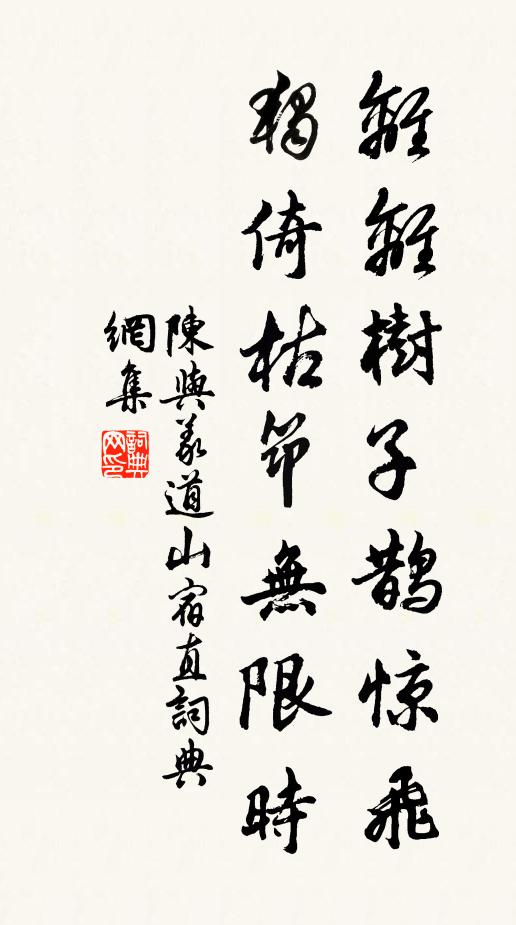 離離樹子鵲惊飛
獨倚枯筇無限時
陳與義道山宿直詞典
網集
詞典網印